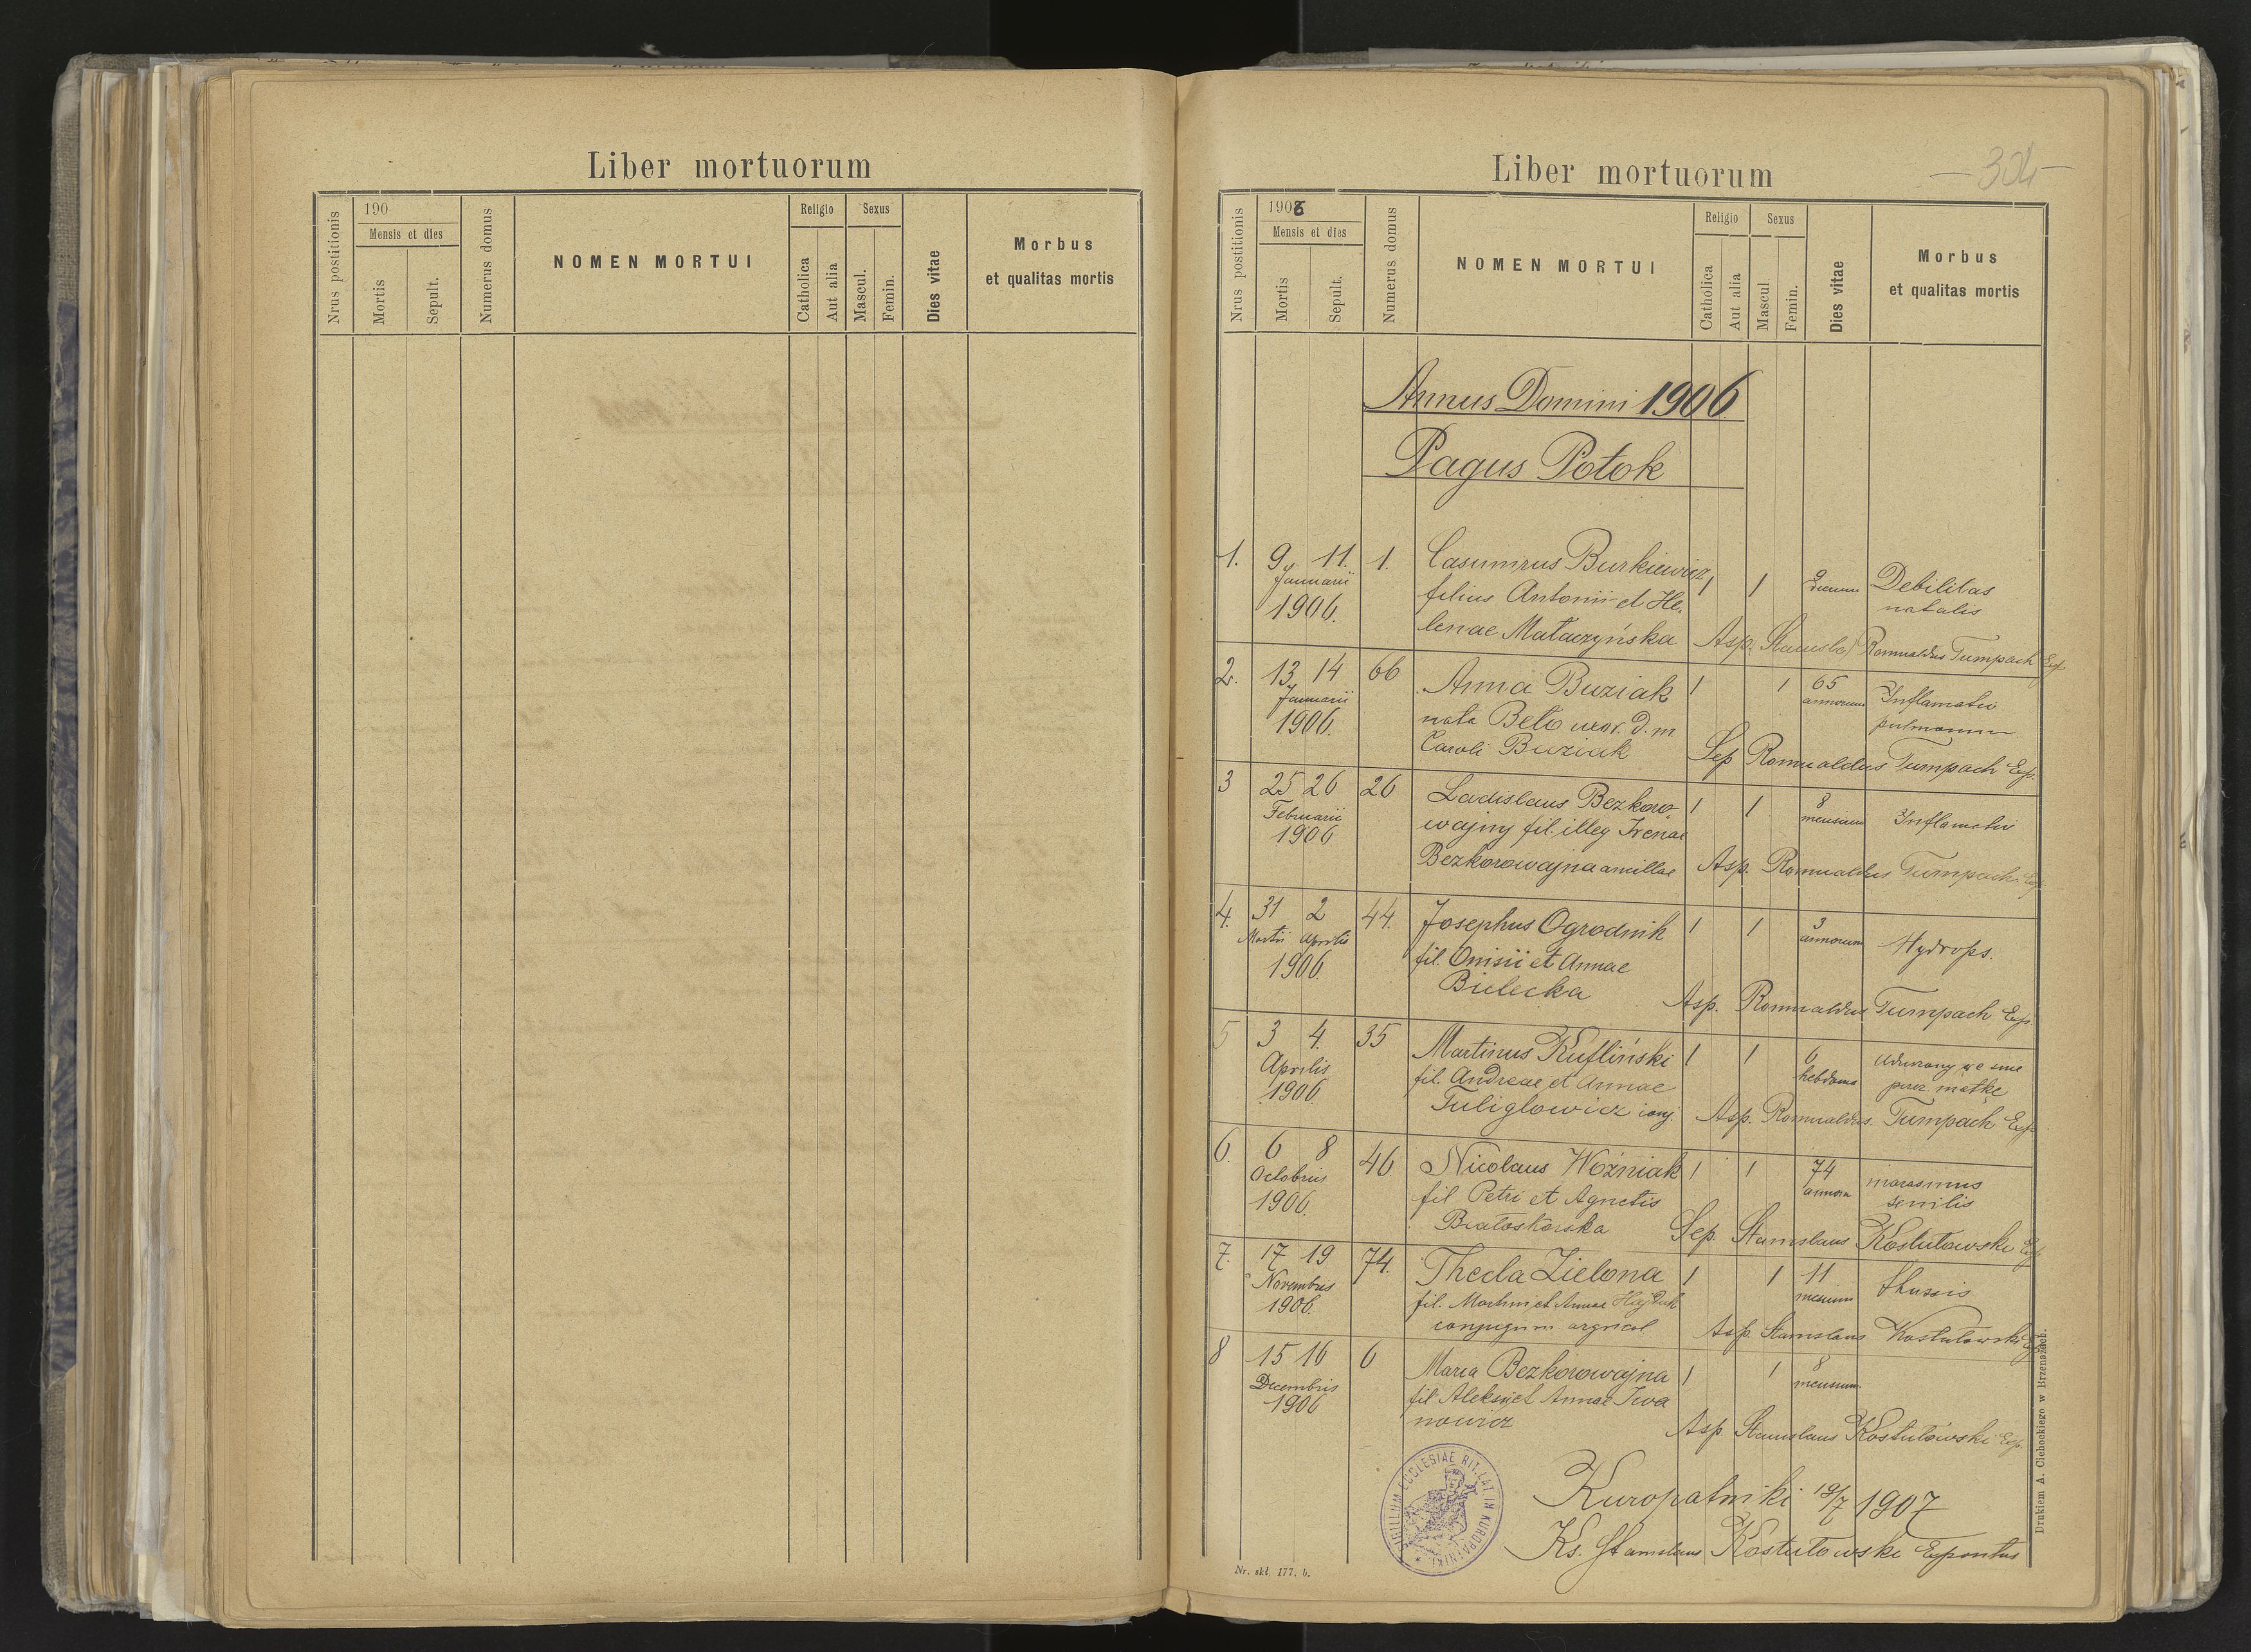 Liber mortuorum
Nrus postitionis
190
Mensis et dies
Mortis
Sepult.
Numerus domus
NOMEN MORTUI
Religio
Catholica
Aut alia
Sexus
Mascul.
Femin.
Dies vitae
Morbus
et qualitas mortis
Liber mortuorum
304
Nrus postitionis
1906
Mensis et dies
Mortis
Sepult.
Numerus domus
NOMEN MORTUI
Religio
Catholica
Aut alia
Sexus
Mascul.
Femin.
Dies vitae
Morbus
et qualitas mortis
Annus Domini 1906
Pagus Potok
1. 9 11. 1. Casimirus Burkiewicz 1 1 9 Debilitas
Januarii filius Antonii et He- dierum natalis
1906. lenae Małaczyńska Asp. Romualdus Tumpach Exp
2. 13 14 66 Anna Buziak 1 1 65 Inflamatio
Januarii nata Beto uxor. d. m. annorum pulmonum
1906. Caroli Buziak Sep Romualdus Tumpach Exp.
3 25 26 26 Ladislaus Bezkoro- 1 1 8 Inflamatio
Februarii wajny fil. illeg Irenae mensium
1906 Bezkorowajna ancillae Asp. Romualdus Tumpach Exp
4. 31 2 44. Josephus Ogrodnik 1 1 3 Hydrops.
Martii Aprilis fil. Onisii et Annae annorum
1906 Bielecka Asp. Romualdus Tumpach Exp.
5 3 4. 35 Martinus Kufliński 1 1 6 we śnie
Aprilis fil. Andreae et Annae hebdoma przez matkę
1906 Tuligłowicz conj. Asp. Romualdus. Tumpach Exp
6. 6 8 46 Nicolaus Woźniak 1 1 74 marasmus
Octobris fil Petri et Agnetis annora senilis
1906. Białoskórska Sep Stanislaus Kostułowski Exp
7. 17 19 74. Thecla Zielona 1 1 11 thussis
Novembris fil. Martini et Annae Hajduk mensium
1906. conjugum agricol Asp. Stanislaus Kostułowski Exp
8 15 16 6 Maria Bezkorowajna 1 1 8
Decembris fil Aleksii et Annae Iwa mensium
1906 nowicz Asp Stanislaus Kostułowski Exp.
Kuropatniki 19/7 1907
Ks. Stanislaus Kostułowski Expositus
SIGILLUM ECCLESIAE RIT. LAT IN KUROPATNIKI
Nr. skł. 177. b.
Drukiem A. Cichockiego w Brzeżanach.